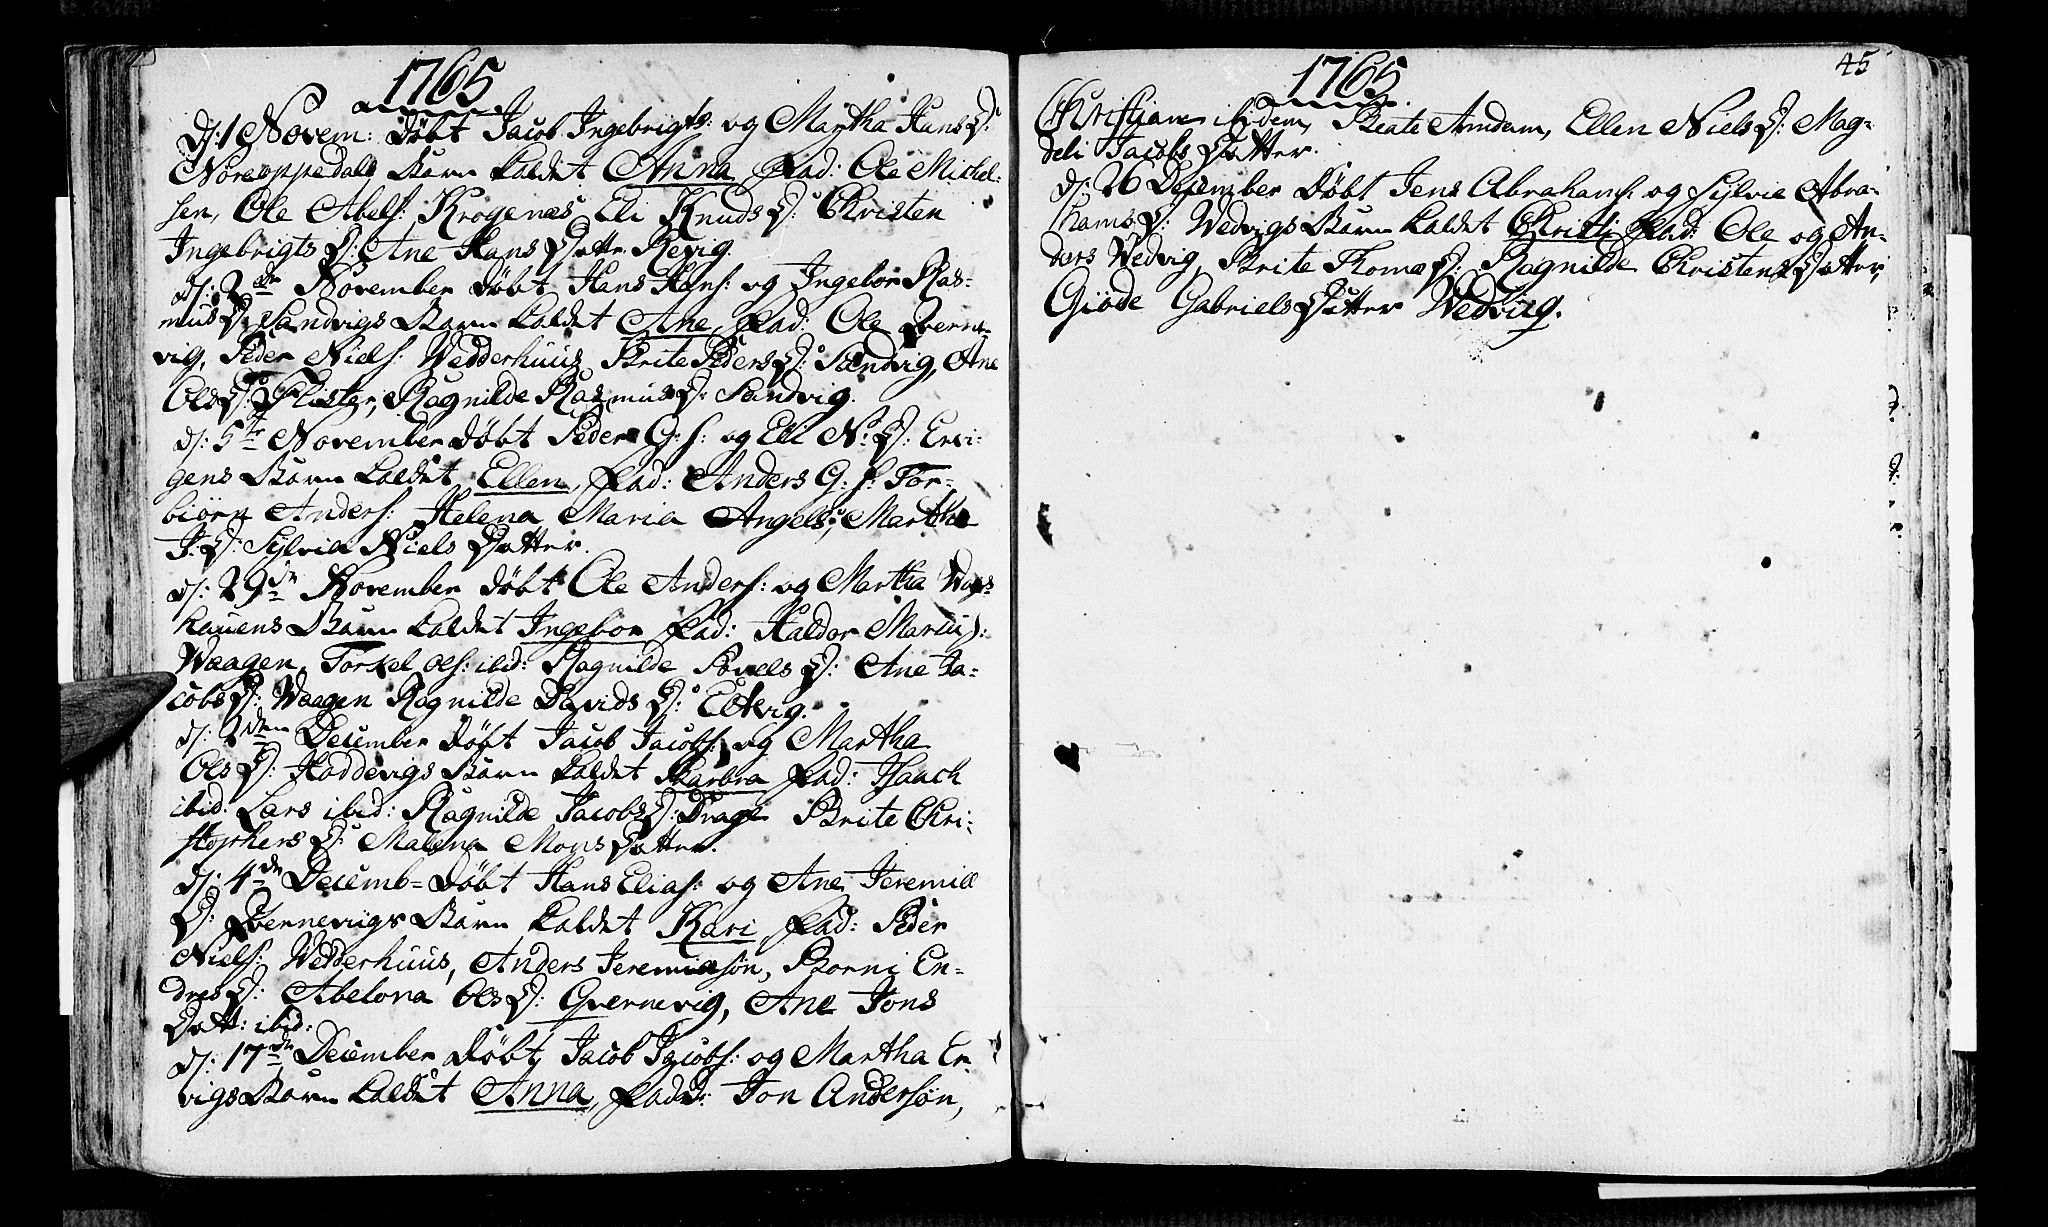 1765
d: 1 Novem: Døbt Jacob Ingebrigts: og Martha Hans D:
Noreoppedals Barn kaldet Anna Fad: Ole Michel-
sen, Ole Abels: Krogenæs Eli Knuds D: Christen
Ingebrigts D: Ane Hans Datter Revig.
d: 2den November Døbt Hans Hans: og Ingebor Ras-
mus D: Sandvigs Barn kaldet Ane, Fad: Ole Qverne-
vig, Peder Niels: Wedderhuus, Brite Peders D: Sandvig, Ane
Ols D: Flister, Ragnilde Rasmus D: Sandvig.
d: 5te November Døbt Peder G: s: og Eli N: D: Ervi-
gens Barn kaldet Ellen, Fad: Anders G: s: Tor-
biørn Anders: Helena Maria Angels, Martha
J: D: Sylvia Niels Datter.
d: 29de November Døbt Ole Anders: og Martha
kauens Barn kaldet Ingebor Fad: Haldor Marius:
Waagen, Torkel Ols: ibid: Ragnilde Povels D: Ane Ja-
cobs D: Waagen Ragnilde Davids D: Eltvig.
d: 2den December Døbt Jacob Jacobs: og Martha
Ols D: Hoddevigs Barn kaldet Barbra Fad: Isaach
ibid: Lars ibid: Ragnilde Jacobs D: Drage Brite Chri-
stophers D: Malena Mons Datter.
d: 4de Decemb= Døbt Hans Elias: og Ane Jeremiæ
D: Qvernevigs Barn kaldet Kari, Fad: Peder
Niels: Wedderhuus, Anders Jeremiasøn, Borni En-
dres D: Abelona Ols D: Qvernevig, Ane Jons
Datt: ibid:
d: 17de December Døbt Jacob Jacobs: og Martha Er-
vigs Barn kaldet Anna, Fadd: Jon Andersøn,
1765
45
Christian ibidem, Beate Amdam, Ellen Niels D: Mag-
deli Jacobs Datter.
d: 26 December Døbt Jens Abrahams: og Sylvie Abra-
hams D: Wedvigs Barn kaldet Christi Fad: Ole og An-
ders Wedvig, Brite Thomæ D: Ragnilde Christens Datter,
Giøde Gabriels Datter Wedvig.